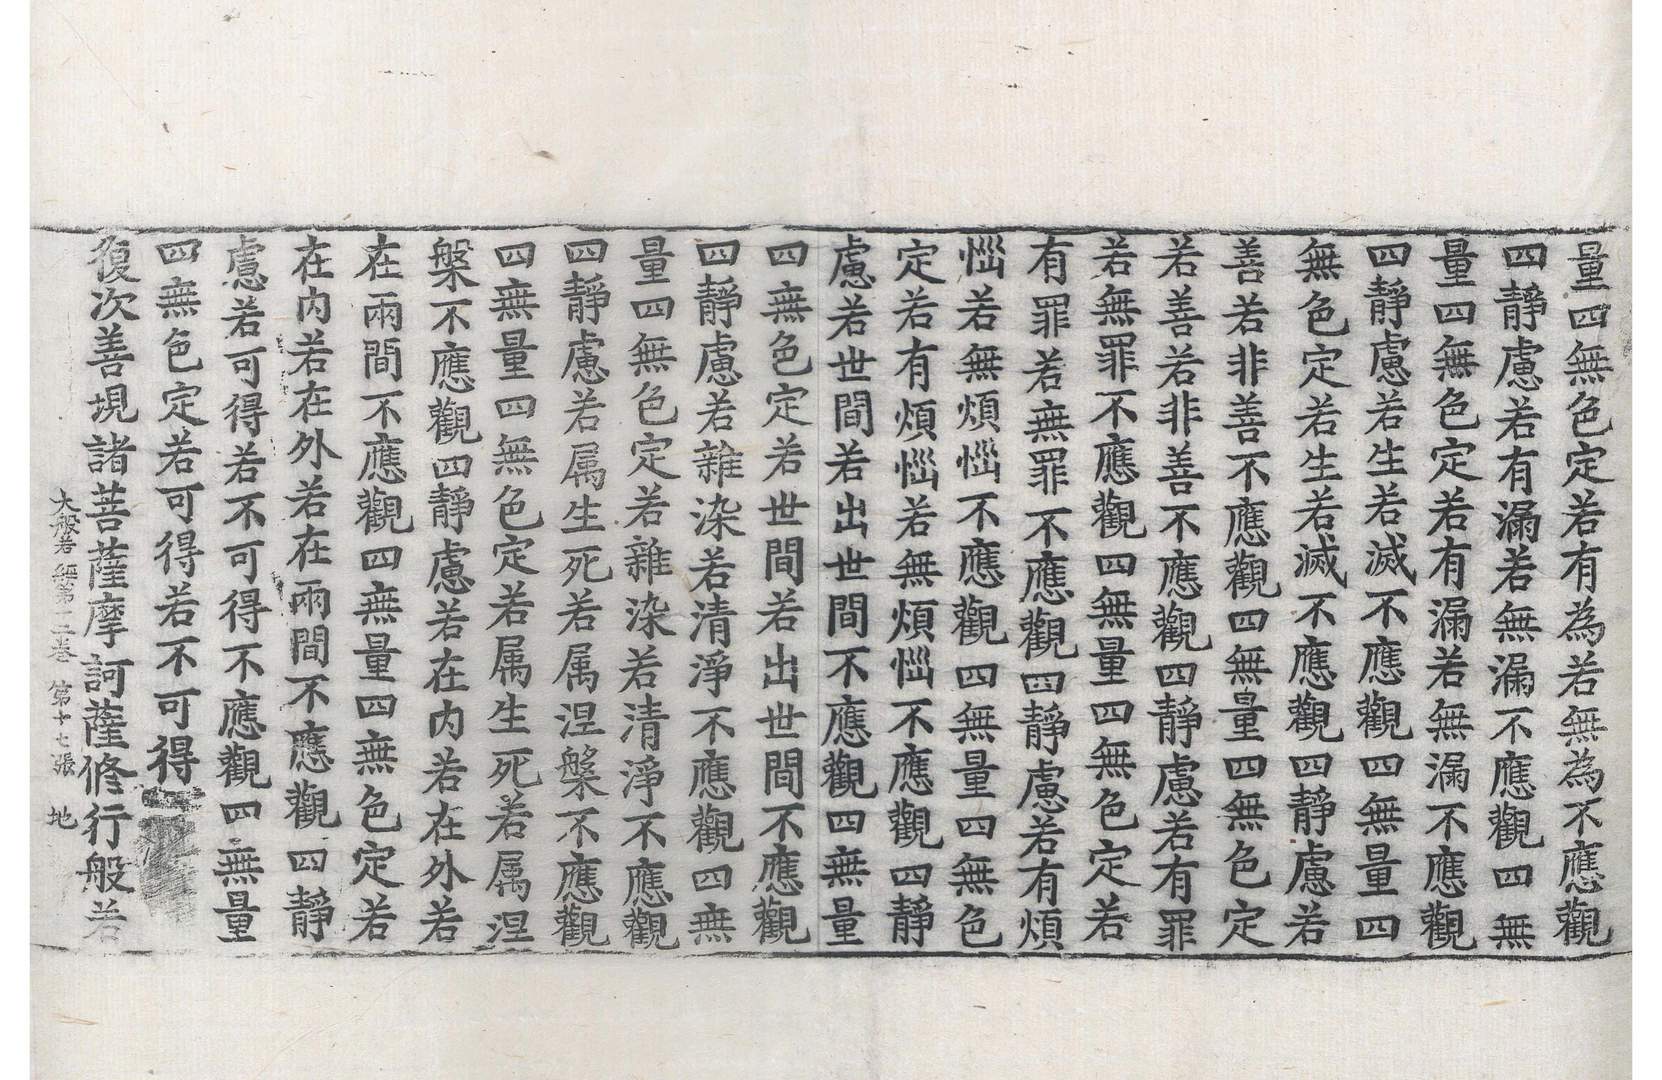 量四無色定若有為若無為不應觀
四靜慮若有漏若無漏不應觀四無
量四無色定若有漏若無漏不應觀
四靜慮若生若滅不應觀四無量四
無色定若生若滅不應觀四靜慮若
善若非善不應觀四無量四無色定
若善若非善不應觀四靜慮若有罪
若無罪不應觀四無量四無色定若
有罪若無罪不應觀四靜慮若有煩
惱若無煩惱不應觀四無量四無色
定若有煩惱若無煩惱不應觀四靜
慮若世間若出世間不應觀四無量
四無色定若世間若出世間不應觀
四靜慮若雜染若清淨不應觀四無
量四無色定若雜染若清淨不應觀
四靜慮若属生死若属涅槃不應觀
四無量四無色定若属生死若属涅
槃不應觀四靜慮若在内若在外若
在兩間不應觀四無量四無色定若
在内若在外若在兩間不應觀四靜
慮若可得若不可得不應觀四無量
四無色定若可得若不可得
復次善現諸菩薩摩訶薩修行般若
大般若經第十二卷 第十七張 地